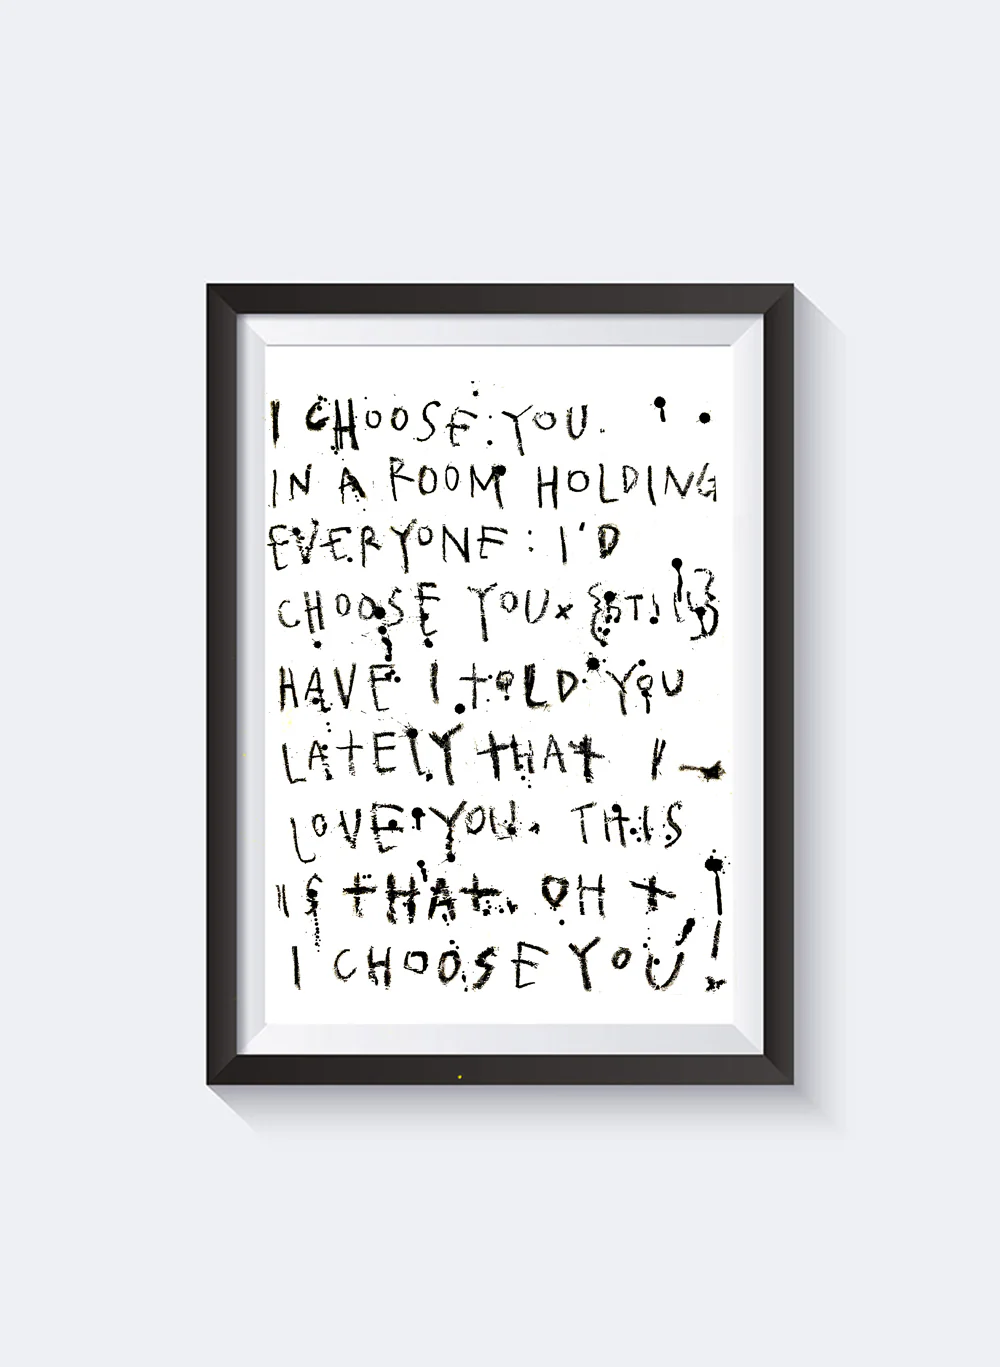 I CHOOSE: YOU.
IN A ROOM HOLDING
EVERYONE: I'D
CHOOSE YOU x {STILL}
HAVE I TOLD YOU
LATELY THAT I
LOVE YOU. THIS
IS THAT. OH +
I CHOOSE YOU!